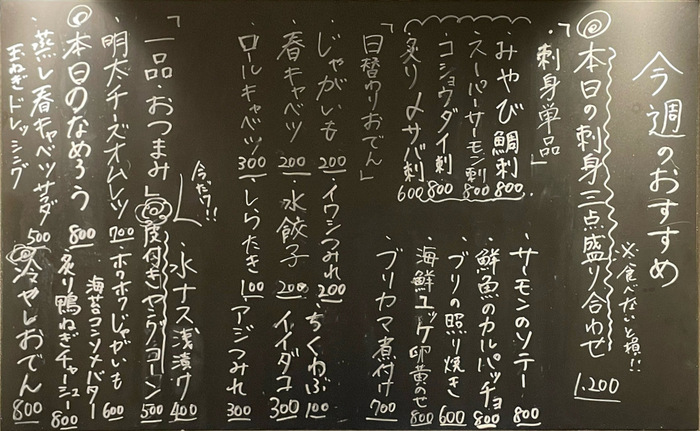 今週のおすすめ
◎本日の刺身三点盛り合わせ 1,200
※食べないと損!!
「刺身単品」
・みやび鯛刺 800
・スーパーサーモン刺 800
・コショウダイ刺 800
・炙り〆サバ刺 600
・サーモンのソテー 800
・鮮魚のカルパッチョ 800
・ブリの照り焼き 600
・海鮮ユッケ卵黄のせ 800
・ブリカマ煮付け 700
「日替わりおでん」
・じゃがいも 200
・春キャベツ 200
・ロールキャベツ 300
・イワシつみれ 200
・水餃子 200
・しらたき 100
・ちくわぶ 100
・イイダコ 300
・アジつみれ 300
「一品・おつまみ」
今だけ!!
・水ナス浅漬け 400
◎皮付きヤングコーン 500
・明太チーズオムレツ 700
・ホクホクじゃがいも
海苔コンソメバター 600
◎本日のなめろう 800
・炙り鴨ねぎチャーシュー 800
・蒸し春キャベツサラダ 500
玉ねぎドレッシング
◎冷やしおでん 800